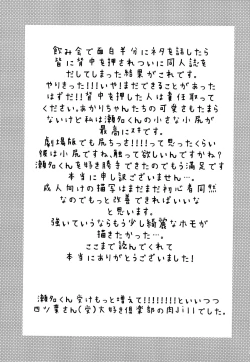 飲み会で面白半分にネタを話したら
皆に背中を押されついに同人誌を
だしてしまった結果がこれです。
やりきった!!!いや!まだできることがあった
はずだ!!背中を押した人は責任取って
ください。あかりちゃんたちの可愛さもたまら
ないけど私は瀬名くんの小さな小尻が
最高にスキです。
劇場版でも尻ちっさ!!!!って思ったくらい
彼は小尻ですね、触って欲しいんですかね?
瀬名くんを好き勝手できたのでもう満足です
本当に申し訳ございません…。
成人向けの描写はまだまだ初心者同然
なのでもっと改善できればいいな
と思います。
強いていうならもう少し綺麗なホモが
描きたかった…。
ここまで読んでくれて
本当にありがとうございました!
瀬名くん受けもっと増えて!!!!!!!!!といいつつ
四ツ葉さん(受)大好き倶楽部の肉Jillでした。